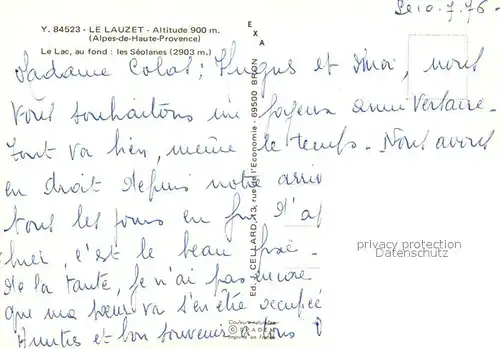 Le 10.7.76 -
Y. 84523 - LE LAUZET - Altitude 900 m.
(Alpes-de-Haute-Provence)
Le Lac, au fond : les Séolanes (2903 m.)
EXA
Madame Colas ; et moi, nous
vous souhaitons un joyeux anniversaire.
Tout va bien, même le temps - Nous avons
en droit depuis notre arri
tous les jours en fin d'ap
c'est le beau fixe -
De la tante, je n'ai pas encore
que ma sœur va s'en être occupée
Amitiés et bon souvenir à tous
Ed. J. CELLARD, 13, rue de l'Economie - 69500 BRON
privacy protection
Datenschutz
Couleurs naturelles
Imprimé en France